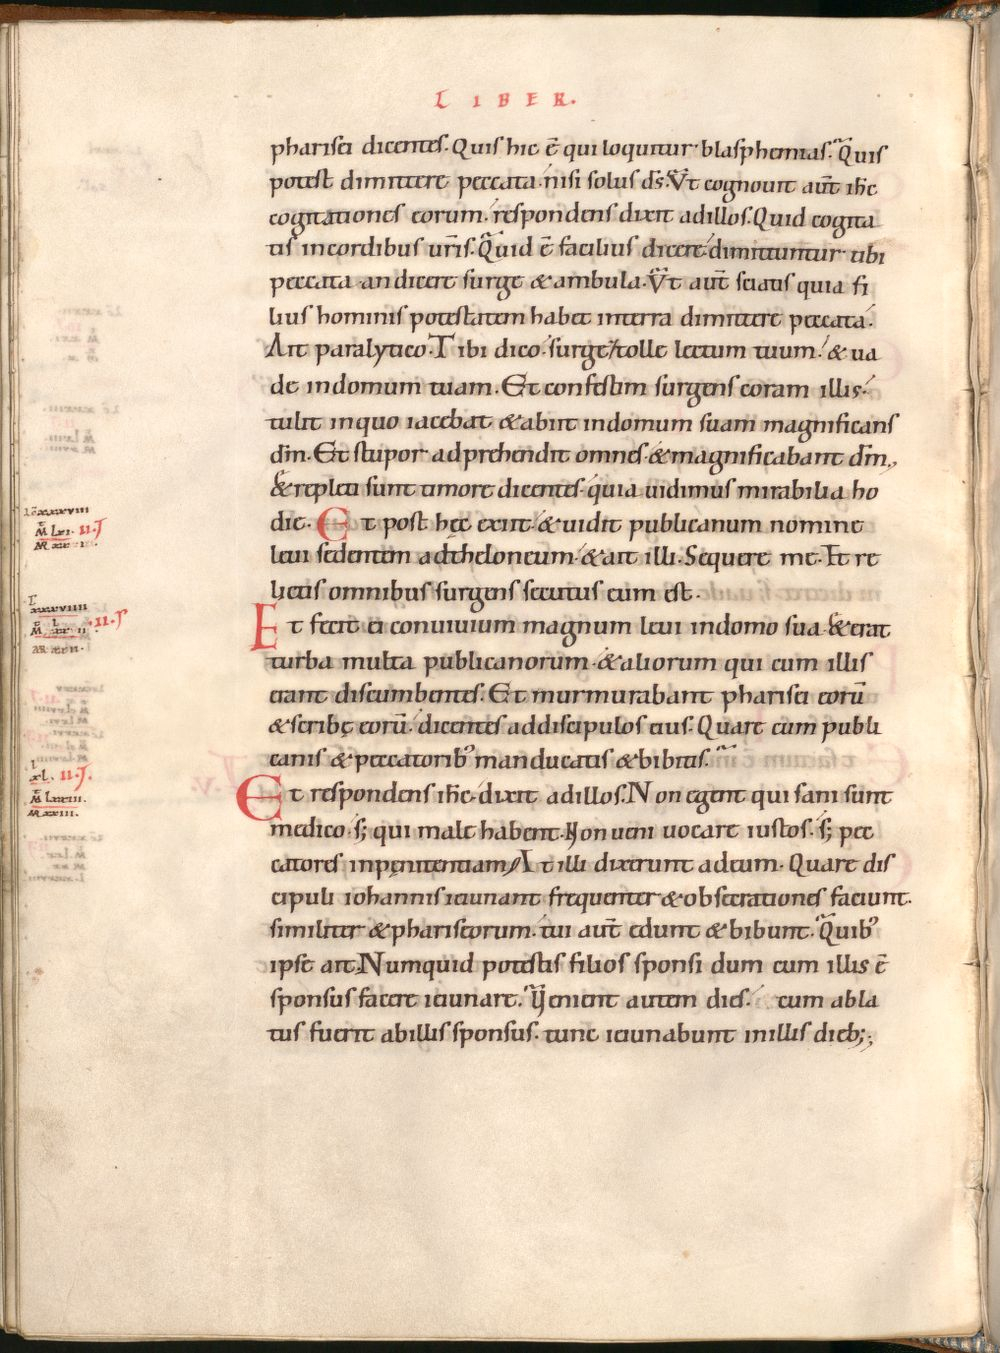 LIBER.
pharisei dicentes. Quis hic ē qui loquitur blasphemias. Quis
potest dimittere peccata. nisi solus d̄s. Ut cognouit aūt ih̄c
cogitationes eorum. respondens dixit adillos. Quid cogita
tis incordibus ur̄is. Quid ē facilius dicere dimittuntur tibi
peccata. an dicere surge & ambula. Ut aūt sciatis quia fi
lius hominis potestatem habet interra dimittere peccata.
Ait paralytico. Tibi dico. surge. tolle lectum tuum. & ua
de indomum tuam. Et confestim surgens coram illis.
tulit inquo iacebat & abiit indomum suam magnificans
dm̄. Et stupor adprehendit omnes. & magnificabant dm̄.,
& repleti sunt timore dicentes. quia uidimus mirabilia ho
die. Et post hęc exiit. & uidit publicanum nomine
leui sedentem adtheloneum. & ait illi. Sequere me. Et re
lictis omnibus surgens secutus eum est.
Et fecit ei conuiuium magnum leui indomo sua. & erat
turba multa publicanorum. & aliorum qui cum illis
erant discumbentes. Et murmurabant pharisei eorū
& scribę eorū. dicentes addiscipulos eius. Quare cum publi
canis & peccatorib⁹ manducatis & bibitis.
Et respondens ih̄c. dixit adillos. Non egent qui sani sunt
medico. s; qui male habent. Non ueni uocare iustos. s; pec
catores inpęnitentiam. At illi dixerunt adeum. Quare dis
cipuli iohannis ieiunant frequenter & obsecrationes faciunt.
similiter & phariseorum. tui aūt edunt & bibunt. Quib⁹
ipse ait. Numquid potestis filios sponsi dum cum illis ē
sponsus facere ieiunare. Uenient autem dies. cum abla
tus fuerit abillis sponsus. tunc ieiunabunt inillis dieb;.,
xxxviii
M̄ lxi. II.
xxxviiii
II.
xl. II.
M̄ lxxiii.
MR xxiii.